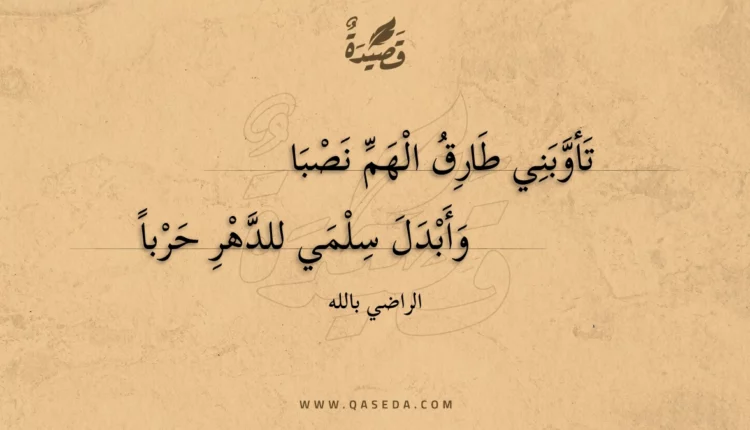 قَصِيْدَةٌ
تَأوَّبَنِي طَارِقُ الْهَمِّ نَصْبَا
وَأَبْدَلَ سِلْمَي للدَّهْرِ حَرْباً
الراضي بالله
WWW.QASEDA.COM